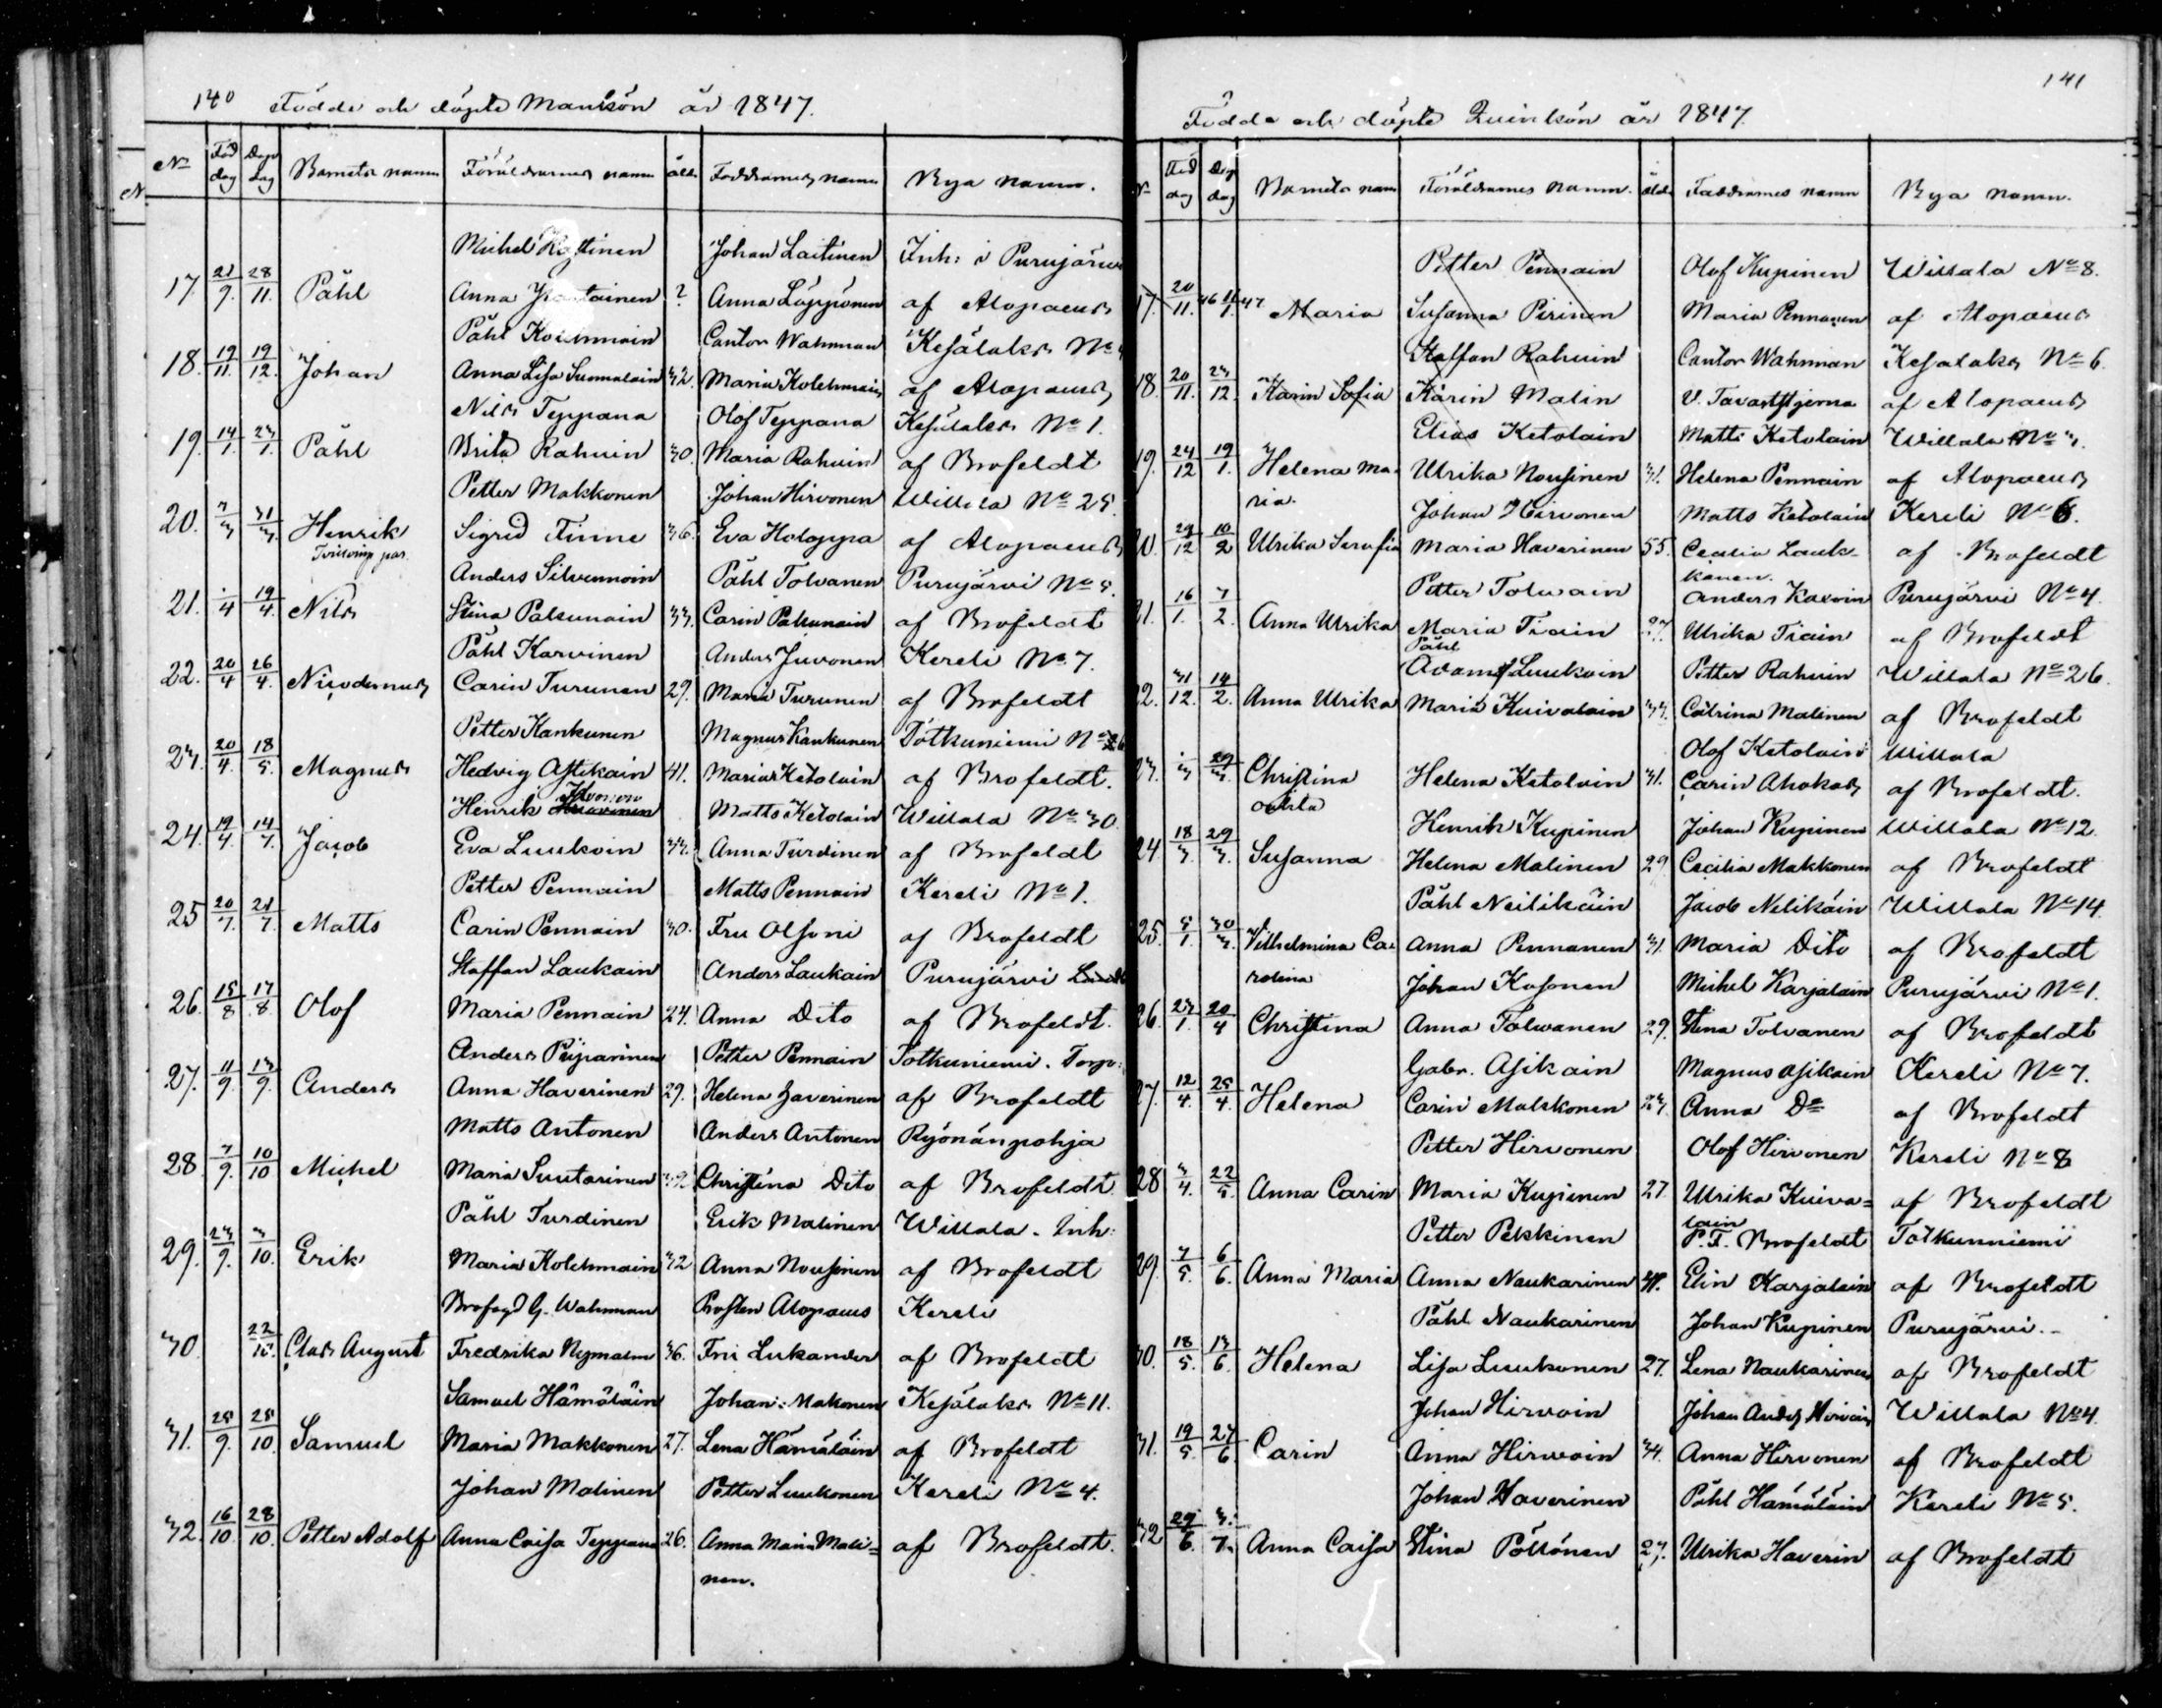 140 Födde och döpte Mankön år 1847.
No Föd dag Döpe dag Barnets namn Föräldrarnes namn åld. Faddrarnes namn Bya namn.
Michel Johan Laitinen Inh: i Purujärvi
17. 21/9. 28/11. Påhl Anna ? Anna Löppönen af Alopaeus
Påhl Kolehmain Cantor Wahnman Kesälaks No
18. 19/11. 19/12. Johan Anna Lisa Sunnalain 32. Maria Kolehmain af Alopaeus
Nils Teppana Olof Teppana Kesälaks No 1.
19. 14/1. 23/1. Påhl Brita Rahuin 30. Maria Rahuin af Brofeldt
Petter Makkonen Johan Hirvonen Willala No 25.
20. 3/3 31/3 Henrik Sigrid Finne 36. Eva Holoppa af Alopaeus
Anders Silvennoin Påhl Tolvanen Purujärvi No 5.
21. 1/4 19/4. Nils Stina Palsunain 33. Carin Pallunain af Brofeldt
Påhl Karvinen Anders Juvonen Kereli No 7.
22. 20/4 26/4. Nicodemus Carin Turunen 29. Maria Turunen af Brofeldt
Petter Kankunen Magnus Kankunen Totkuniemi No
23. 20/4. 18/5. Magnus Hedvig Asikain 41. Maria Ketolain af Brofeldt.
Henrik Matts Ketolain Willala No 30
24. 19/4. 14/7. Jacob Eva Luukoin 33. Anna Turdinen af Brofeldt
Petter Pennain Matts Pennain Kereli No 1.
25 20/7. 21/7. Matts Carin Pennain 30. Fru Olsoni af Brofeldt
Staffan Laukain Anders Laukain Purujärvi
26. 15/8 17/8. Olof Maria Pennain 24. Anna Dito af Brofeldt.
Anders Piiparinen Petter Pennain Totkuniemi. Torp:
27. 11/9. 13/9. Anders Anna Haverinen 29. Helena Haverinen af Brofeldt
Matts Antonen Anders Antonen Ryönänpohja
28 7/9. 10/10 Michel Maria Suutarinen 32 Christina Dito af Brofeldt
Påhl Turdinen Erik Malinen Willala. Inh:
29. 23/9. 3/10. Erik Maria Kolehmain 32 Anna Nousinen af Brofeldt
G. Wahnman Prosten Alopaeus Kereli
30 22/10. Clas August Fredrika Nymalm 36. Fru Lukander af Brofeldt
Samuel Hämäläin Johan Makonen Kesälaks No 11.
31. 25/9. 25/10. Samuel Maria Makkonen 27. Lena Hämäläin af Brofeldt
Johan Malinen Petter Luukonen Kereli No 4.
32. 16/10 28/10. Petter Adolf Anna Caisa Teppana 26. Anna Maria Mali= af Brofeldt.
nen.
141
Födde och döpte Quinkön år 1847.
No Föd dag Döp dag Barnets namn Föräldrarnes namn. åld. Faddrarnes namn Bya namn.
Petter Pennain Olof Kupinen Willala No 8.
17. 20/11. 46 11/1. 47 Maria Susanna Pirinen Maria Pennanen af Alopaeus
Staffan Rahuin Cantor Wahnman Kesalaks No 6.
18. 20/11. 23/12. Karin Sofia Karin Malin V. Tavaststjerna af Alopaeus
Elias Ketolain Matts Ketolain Willala No 3.
19. 24/12 19/1. Helena Ma- Ulrika Nousinen 31. Helena Pennain af Alopaeus
ria. Johan Hirvonen Matts Ketolain Kereli No 6.
20. 29/12 10/2 Ulrika Serafia Maria Haverinen 35. Cecilia Lauk- af Brofeldt
kanen.
Petter Tolvain Anders Karvin Purujärvi No 4.
21. 16/1. 7/2. Anna Ulrika Maria Tiain 27. Ulrika Tiain af Brofeldt
Påhl
Adamsf Luukoin Petter Rahuin Willala No 26.
22. 31/12. 14/2. Anna Ulrika Maria Kuivalain 33. Catrina Malinen af Brofeldt
Olof Ketolain Willala
23. 1/3 29/3. Christina Helena Ketolain 31. Carin Ahokas af Brofeldt.
oäkta Henrik Kupinen Johan Kupinen Willala No 12.
24. 18/3. 29/3. Susanna Helena Malinen 29 Cecilia Makkonen af Brofeldt
Påhl Neilikäin Jacob Nelikäin Willala No 14.
25. 5/1. 30/3. Vilhelmina Ca- Anna Pennanen 31. Maria Dito af Brofeldt
rolina Johan Kosonen Michel Karjalain Purujärvi No 1.
26. 23/1. 20/4 Christina Anna Tolwanen 29. Stina Tolvanen af Brofeldt
Gabr. Asikain Magnus Asikain Kereli No 7.
27. 12/4. 25/4. Helena Carin Makkonen 23. Anna Do af Brofeldt
Petter Hirvonen Olof Hirvonen Kereli No 8
28 3/4. 22/5. Anna Carin Maria Kupinen 27. Ulrika Kuiva= af Brofeldt
lain
Petter Pekkinen P. F. Brofeldt Totkunniemi
29. 7/5. 6/6. Anna Maria Anna Naukarinen Elin Karjalain af Brofeldt
Påhl Naukarinen Johan Kupinen Purujärvi.
30. 18/5. 13/6. Helena Lisa Luukonen 27. Lena Naukarinen af Brofeldt
Johan Hirvoin Johan Anders Hirvoin Willala No 4.
31. 19/5. 27/6. Carin Anna Hirwoin 34. Anna Hirvonen af Brofeldt
Johan Haverinen Påhl Hämäläin Kereli No 5.
32 29/6. 3/7. Anna Caisa Stina Pöllönen 27. Ulrika Haverin af Brofeldt